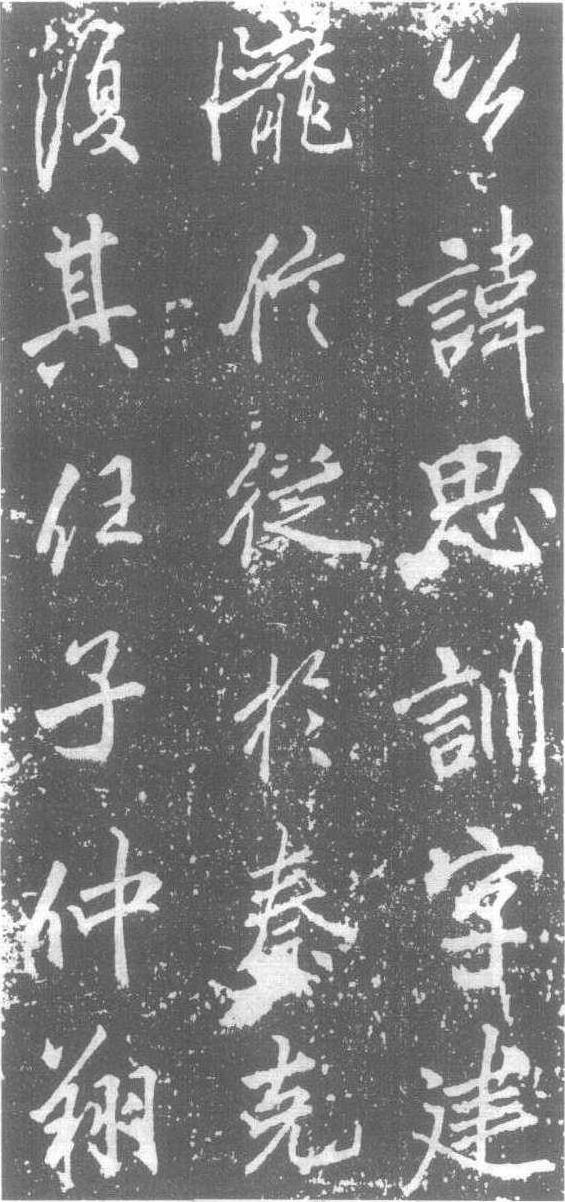 公諱思訓字建
隴從於秦克
復其任子仲翔